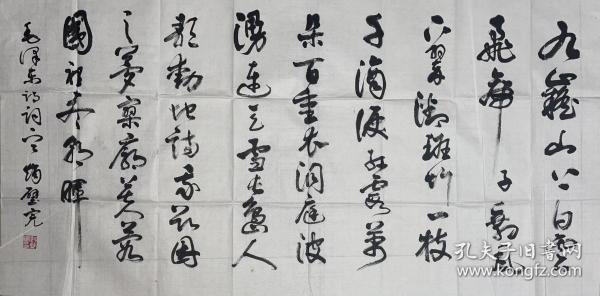 九嶷山上白雲
飛帝子乘風
下翠微斑竹一枝
千滴淚紅霞萬
朵百重衣洞庭波
湧連天雪長島人
歌動地詩我欲因
之夢寥廓芙蓉
國裡盡朝暉
毛澤東詩詞
孔夫子旧书网
www.kongfz.com